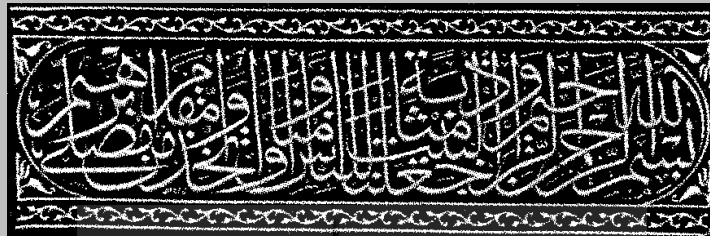 بسم الله الرحمن الرحيم واذ جعلنا البيت مثابة للناس وامنا واتخذوا من مقام ابراهيم مصلى